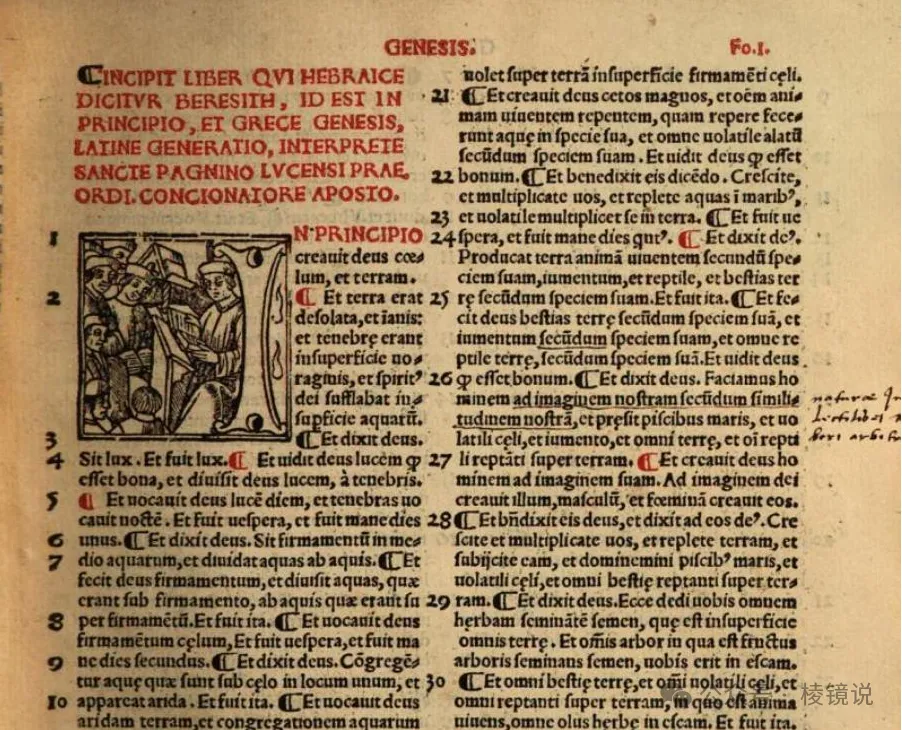 GENESIS.
Fo.I.
INCIPIT LIBER QVI HEBRAICE
DICITVR BERESITH, ID EST IN
PRINCIPIO, ET GRECE GENESIS,
LATINE GENERATIO, INTERPRETE
SANCTE PAGNINO LVCENSI PRAE,
ORDI. CONCIONATORE APOSTO.
1 IN PRINCIPIO
creauit deus cœ⸗
lum, et terram.
2 ¶ Et terra erat
desolata, et īanis:
et tenebrę erant
insuperficie uo⸗
raginis, et spirit⁹
dei sufflabat in⸗
supficie aquarū.
3 ¶ Et dixit deus.
4 Sit lux. Et fuit lux. ¶ Et uidit deus lucem ꝙ
esset bona, et diuisit deus lucem, à tenebris.
5 ¶ Et uocauit deus lucē diem, et tenebras uo
cauit noctē. Et fuit uespera, et fuit mane dies
6 unus. ¶ Et dixit deus. Sit firmamentū in me⸗
7 dio aquarum, et diuidat aquas ab aquis. ¶ Et
fecit deus firmamentum, et diuisit aquas, quæ
erant sub firmamento, ab aquis quæ erant su
8 per firmamētū. Et fuit ita. ¶ Et uocauit deus
firmamētum cęlum, Et fuit uespera, et fuit ma
9 ne dies secundus. ¶ Et dixit deus. Cōgregē⸗
tur aquę quæ sunt sub cęlo in locum unum, et
10 appareat arida. Et fuit ita. ¶ Et uocauit deus
aridam terram, et congregationem aquarum
uolet super terrā insuperficie firmamēti cęli.
21 ¶ Et creauit deus cetos magnos, et oēm ani⸗
mam uiuentem repentem, quam repere fece⸗
runt aquę in specie sua, et omne uolatile alatū
secūdum speciem suam. Et uidit deus ꝙ esset
22 bonum. ¶ Et benedixit eis dicēdo. Crescite,
et multiplicate uos, et replete aquas ī marib⁹,
23 et uolatile multiplicet se in terra. ¶ Et fuit ue
24 spera, et fuit mane dies qnt⁹. ¶ Et dixit de⁹.
Producat terra animā uiuentem secundū spe⸗
ciem suam, iumentum, et reptile, et bestias ter
25 rę secūdum speciem suam. Et fuit ita. ¶ Et fe⸗
cit deus bestias terrę secūdum speciem suā, et
iumentum secūdum speciem suam, et omne re
ptile terrę, secūdum speciem suā. Et uidit deus
26 ꝙ esset bonum. ¶ Et dixit deus. Faciamus ho
minem ad imaginem nostram secūdum simili⸗
tudinem nostrā, et pręsit piscibus maris, et uo
latili cęli, et iumento, et omni terrę, et oī repti
27 li reptāti super terram. ¶ Et creauit deus ho
minem ad imaginem suam. Ad imaginem dei
creauit illum, masculū, et fœminā creauit eos.
28 ¶ Et bn̄dixit eis deus, et dixit ad eos de⁹. Cre
scite et multiplicate uos, et replete terram, et
subijcite eam, et dominemini piscib⁹ maris, et
uolatili cęli, et omni bestię reptanti super ter⸗
29 ram. ¶ Et dixit deus. Ecce dedi uobis omnem
herbam seminātē semen, quę est insuperficie
omnis terrę. Et om̄is arbor in qua est fructus
arboris seminans semen, uobis erit in escam.
30 ¶ Et omni bestię terrę, et om̄i uolatili cęli, et
omni reptanti super terram, in quo est anima
uiuens, omne olus herbę in escam. Et fuit ita.
公众号 · 棱镜说